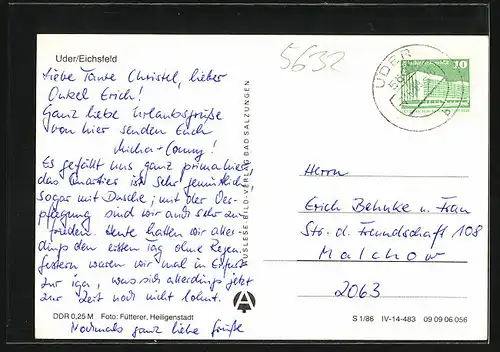 Uder/Eichsfeld
5632
UDER
10
Liebe Tante Christel, lieber
Onkel Erich!
Ganz liebe Urlaubsgrüße
von hier senden Euch
Micha + Conny!
Es gefällt uns ganz prima hier,
das Quartier ist sehr gemütlich,
sogar mit Dusche; mit der Ver-
pflegung sind wir auch sehr zu-
frieden. Heute hatten wir aller-
dings den ersten Tag ohne Regen,
gestern waren wir mal in Erfurt
zur iga, was sich allerdings jetzt
zur Zeit noch nicht lohnt.
DDR 0,25 M Foto: Fütterer, Heiligenstadt
Nochmals ganz liebe Grüße
AUSLESE BILD-VERLAG BAD SALZUNGEN
Herrn
Erich Behnke u. Frau
Str. d. Freundschaft 108
Malchow
2063
S 1/86 IV-14-483 09 09 06 056